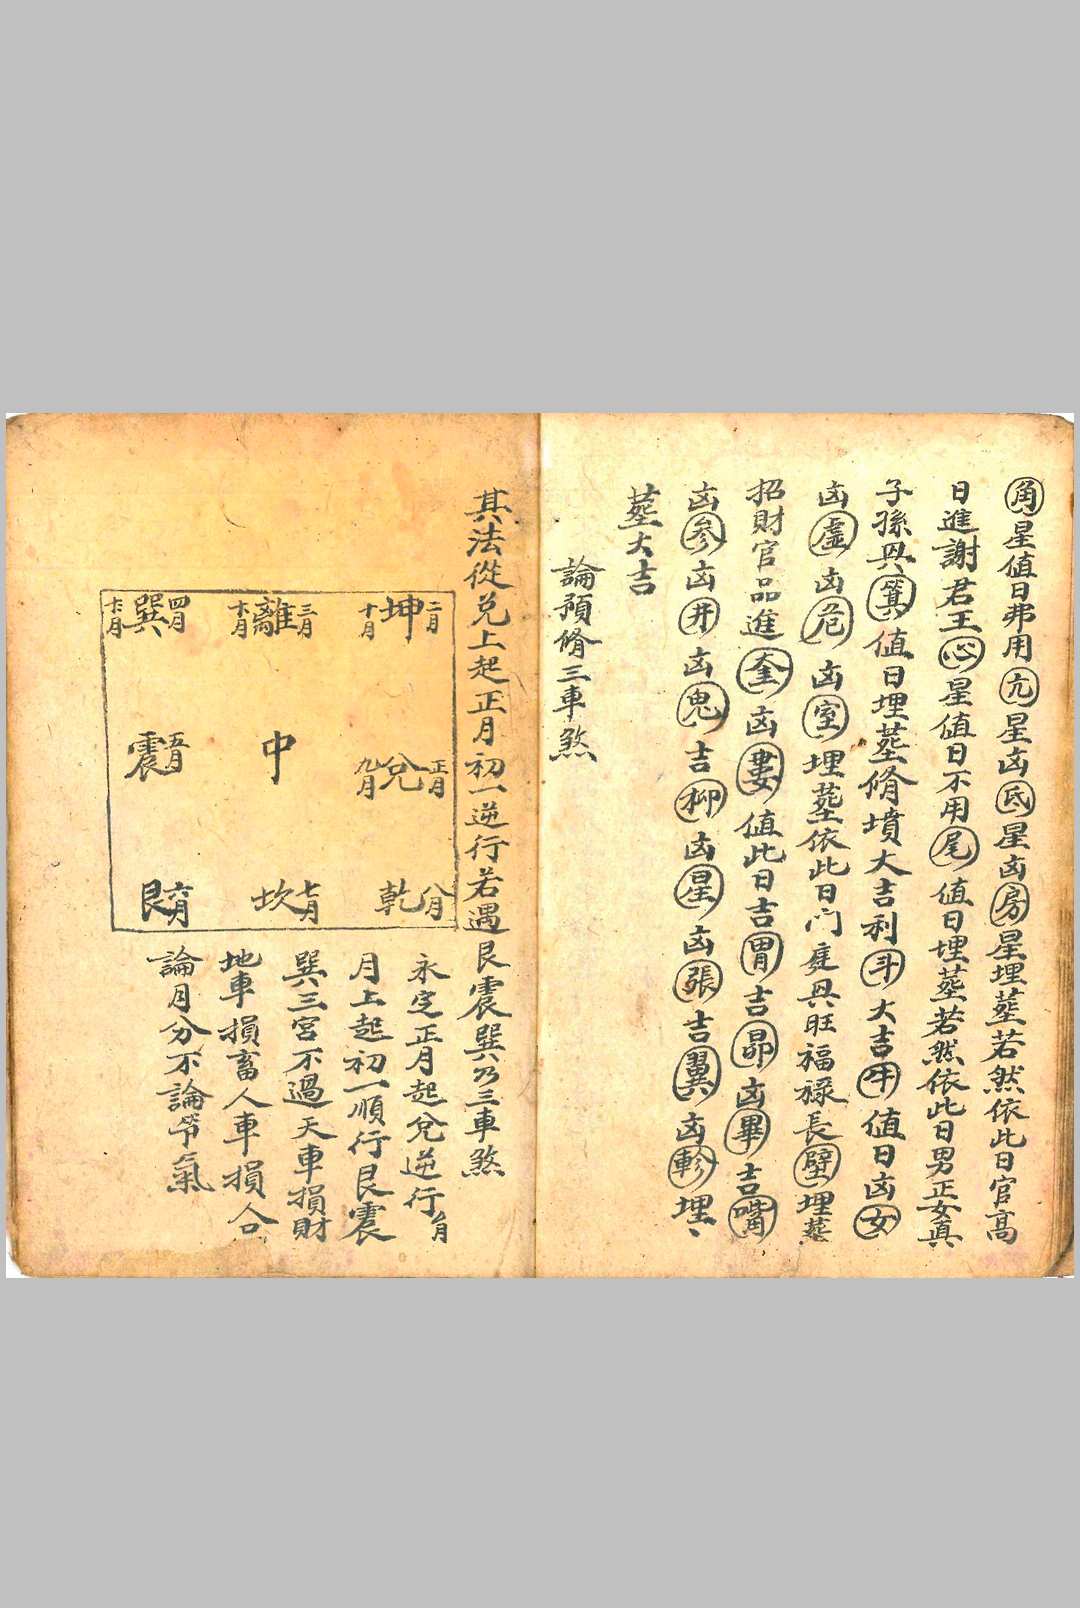 角星值日弗用亢星凶氐星凶房星埋塟若然依此日官高
日進謝君王心星值日不用尾值日埋塟若然依此日男正女真
子孫興箕值日埋塟脩墳大吉利斗大吉牛值日凶女
凶虛凶危凶室埋塟依此日门庭興旺福禄長壁埋塟
招財官品進奎凶婁值此日吉胃吉昴凶畢吉嘴
凶参凶井凶鬼吉柳凶星凶張吉翼凶軫埋、
塟大吉
論預脩三車煞
其法從兌上起正月初一逆行若遇艮震巽乃三車煞
二月坤十月
三月離十一月
四月巽十二月
正月兌九月
中
五月震
八月乾
七月坎
六月艮
永定正月起兌逆行each月
月上起初一順行艮震
巽三宮不過天車損財
地車損畜人車損人口
論月分不論節氣